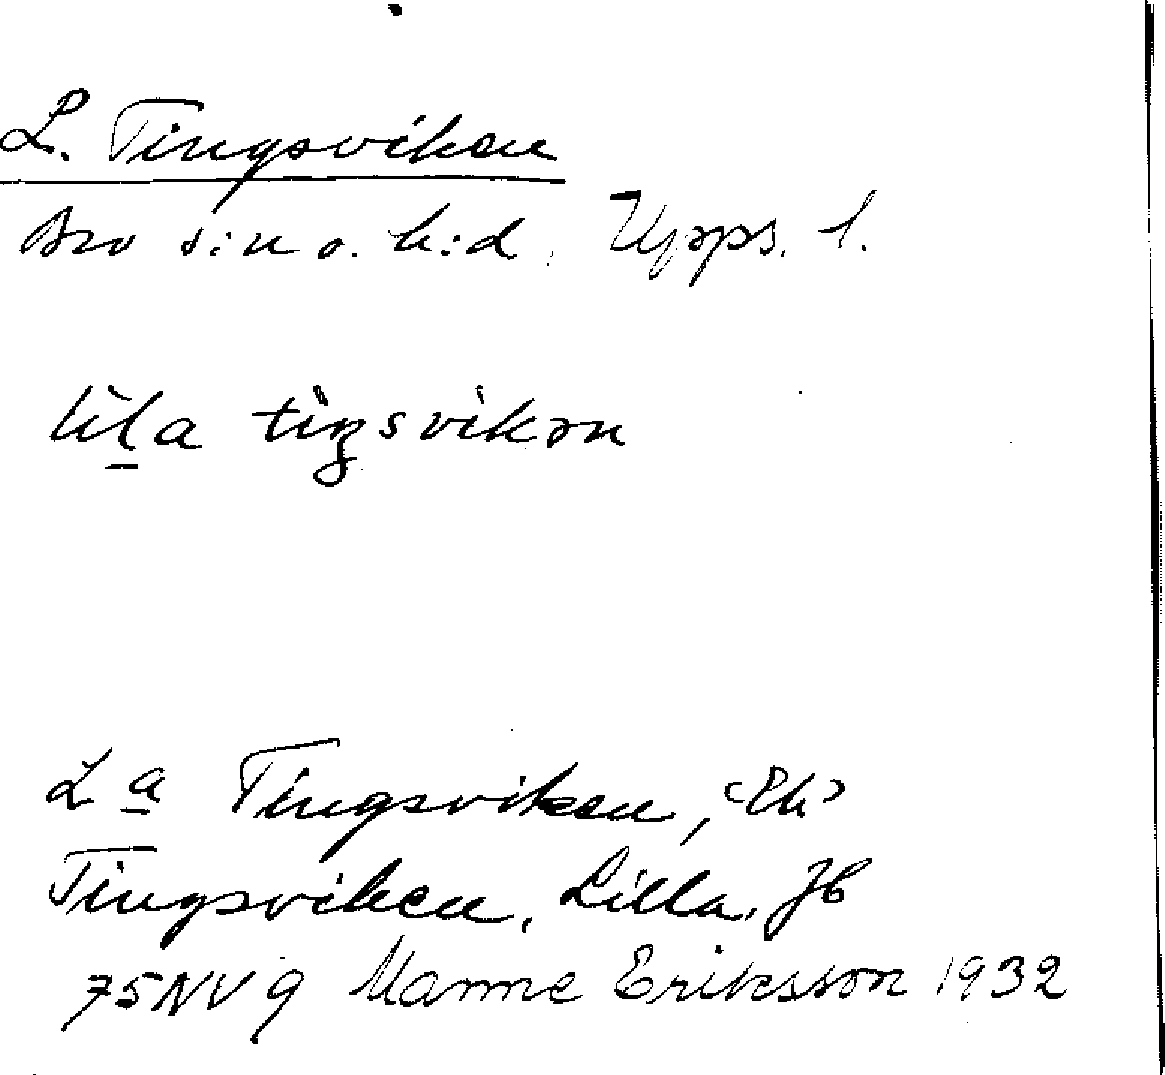 L. Tingsviken
Bro s:n o. h:d. Upps. l.
lil̲a tiŋsvikən
L a Tingsviken, <Ek>
Tingsviken, Lilla, Jb
75NV9 Manne Eriksson 1932